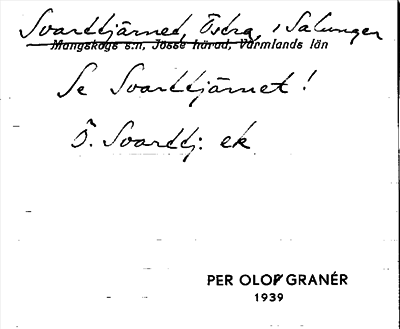 Svarttjärnet, Östra, i Salungen
Mangskogs s:n, Jösse härad, Värmlands län
Se Svarttjärnet!
Ö. Svarttj: ek
PER OLOF GRANÉR
1939